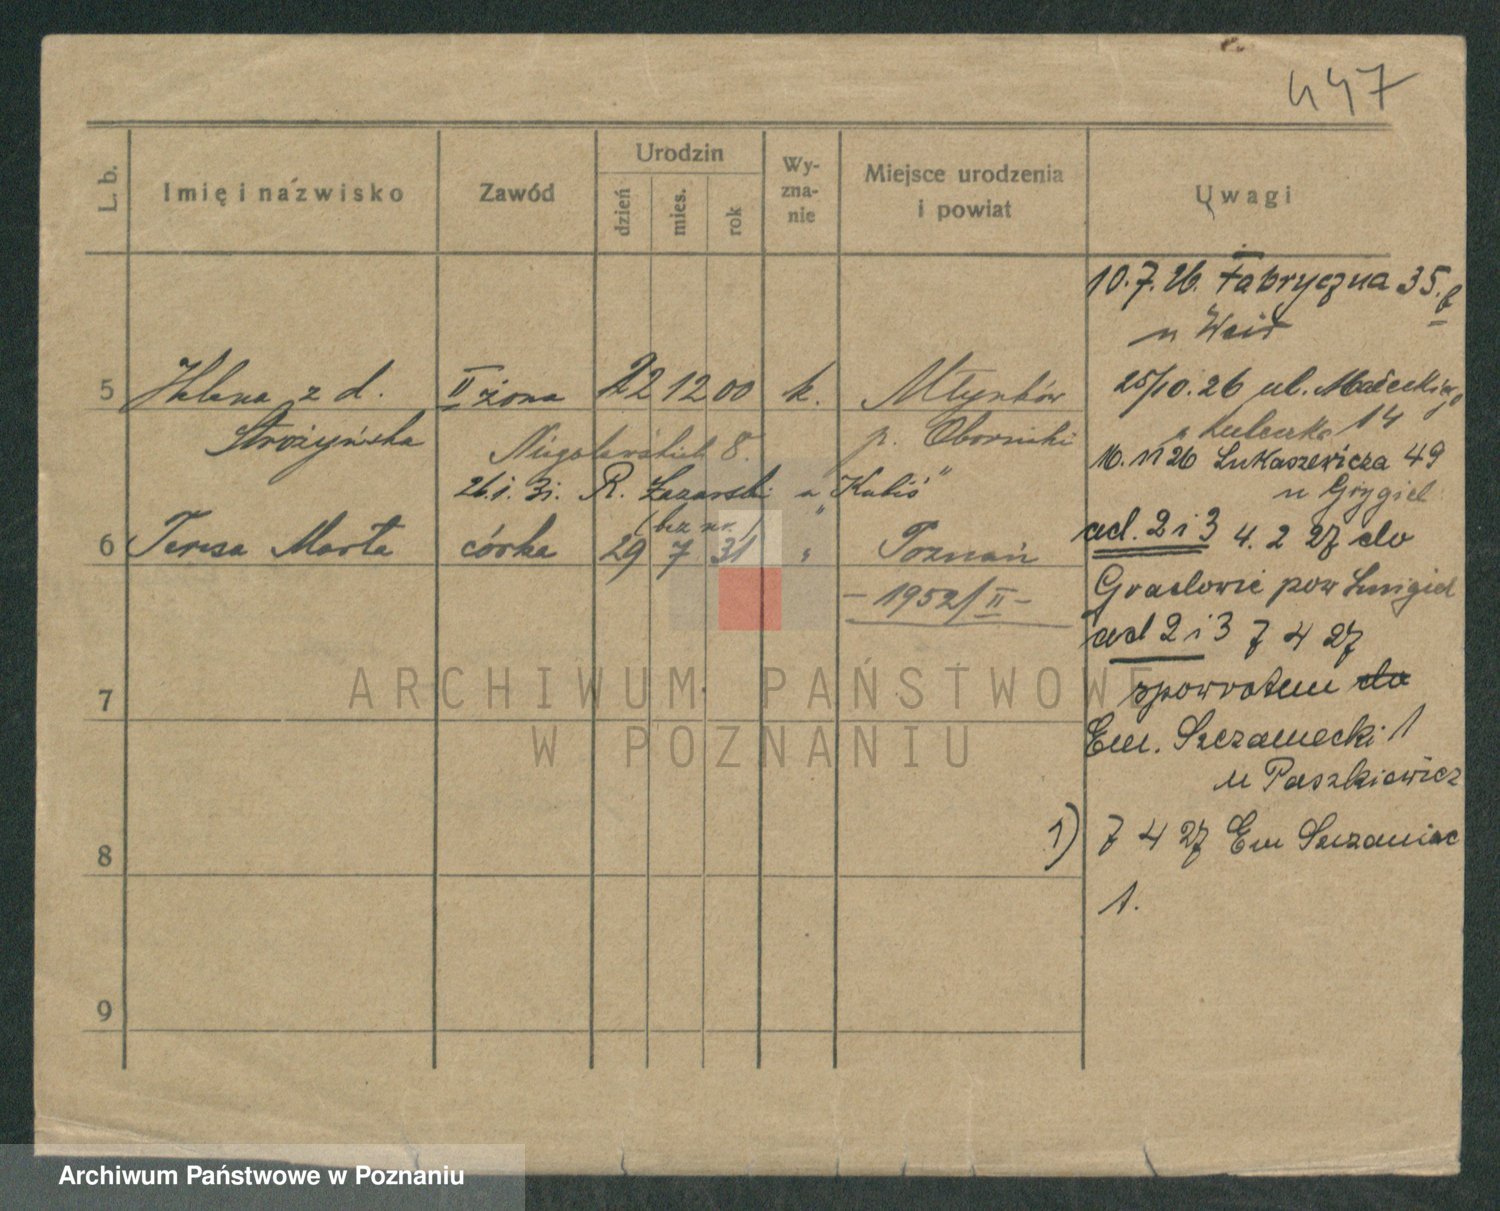 447
L. b.
Imię i nazwisko
Zawód
Urodzin
dzień
mies.
rok
Wy-
zna-
nie
Miejsce urodzenia
i powiat
Uwagi
10.7.26. Fabryczna 35.
u
5 Helena z d. II żona 22 12 00 k. Młynków
Strożyńska
8.
p. Obornicki
26.1.31. R. Łazarski u "
(bez nr.)
6 Teresa Marta córka 29 7 31 " Poznań
- 1952/II -
7
8
9
25/10.26 ul. Małeckiego
14
16.11 26 Łukaszewicza 49
u Grygiel
ad. 2 i 3 4. 2 27 do
pow Śmigiel
ad 2 i 3 7 4 27
spowrotem do
Em. Szczanieckij 1
u Paszkiewicz
1) 7 4 27 Em Szczaniec
1.
ARCHIWUM PAŃSTWOWE
W POZNANIU
Archiwum Państwowe w Poznaniu